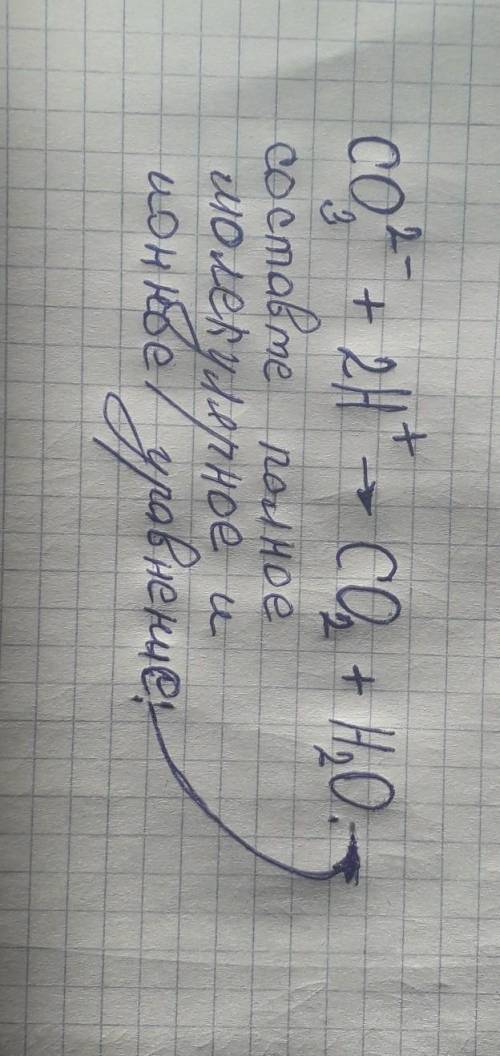 CO₃²⁻ + 2H⁺ → CO₂ + H₂O.
составте полное
молекулярное и
ионное уравнение: